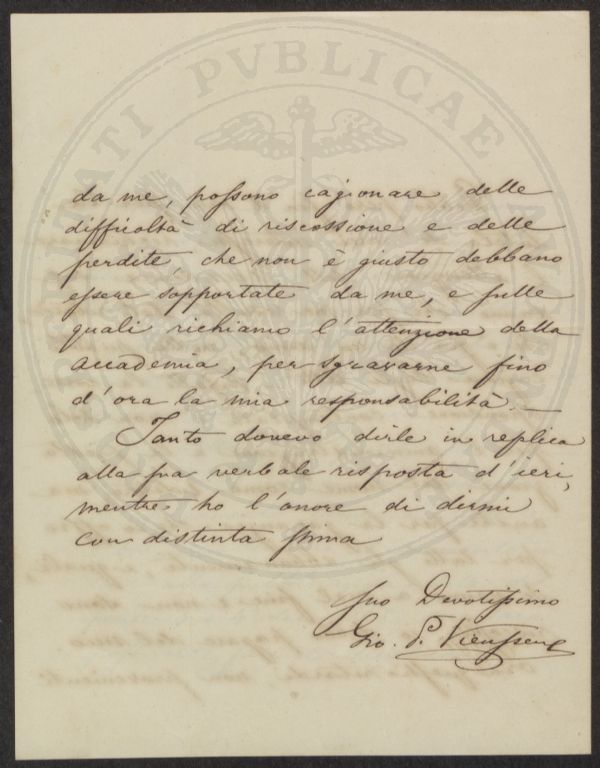 da me, possono cagionare delle
difficoltà di riscossione e delle
perdite, che non è giusto debbano
essere sopportate da me, e sulle
quali richiamo l'attenzione della
Accademia, per sgravarne fino
d'ora la mia responsabilità. —
Tanto dovevo dirle in replica
alla sua verbale risposta d'ieri,
mentre ho l'onore di dirmi
con distinta stima
suo Devotissimo
Gio. P. Vieusseux
PVBLICAE